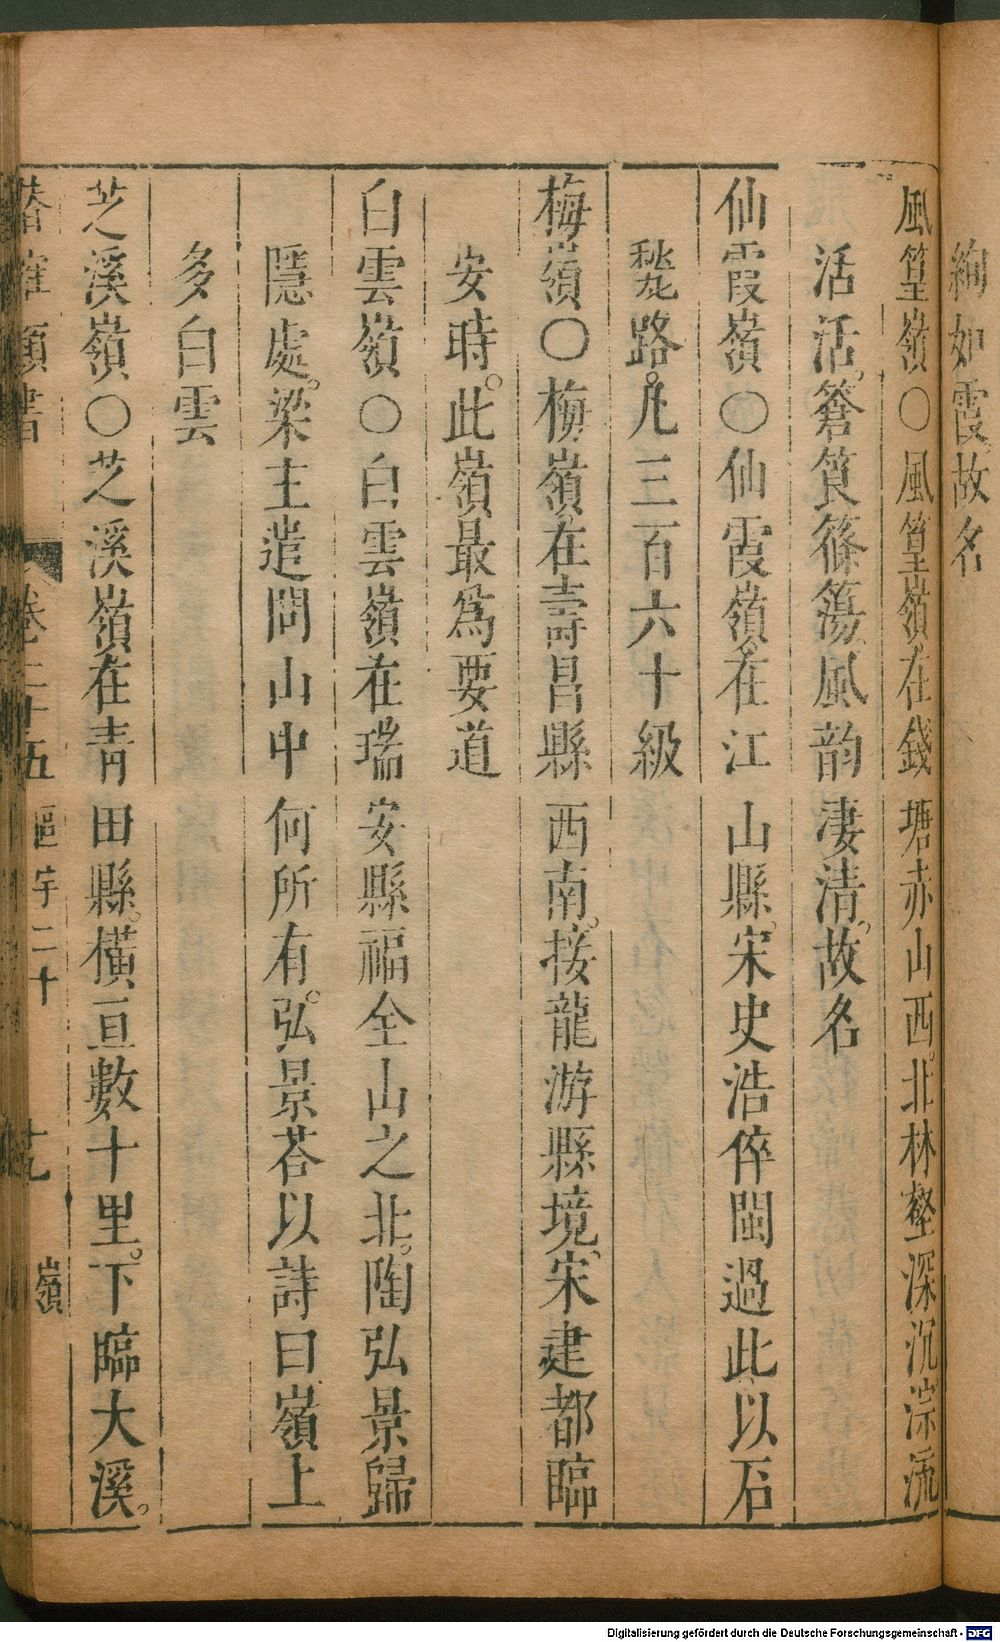 絢如霞故名
風篁嶺○風篁嶺在錢塘赤山西。北林壑深沉淙流
活活。篬筤篠簜風韵淒清。故名
仙霞嶺○仙霞嶺在江山縣。宋史浩倅閩過此。以石
甃路。凡三百六十級
梅嶺○梅嶺在壽昌縣西南。接龍游縣境。宋建都臨
安時。此嶺最為要道
白雲嶺○白雲嶺在瑞安縣福全山之北。陶弘景歸
隱處。梁主遣問山中何所有。弘景荅以詩曰嶺上
多白雲
芝溪嶺○芝溪嶺在青田縣。橫亘數十里。下臨大溪。
類書 卷二十五 區宇二十 十九 嶺
Digitalisierung gefördert durch die Deutsche Forschungsgemeinschaft - DFG